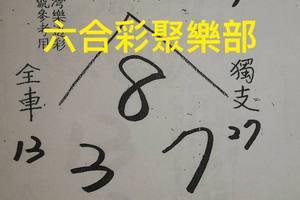 灣樂彩
號參考用
六合彩聚樂部
8
全車
獨支
13
3
7
27